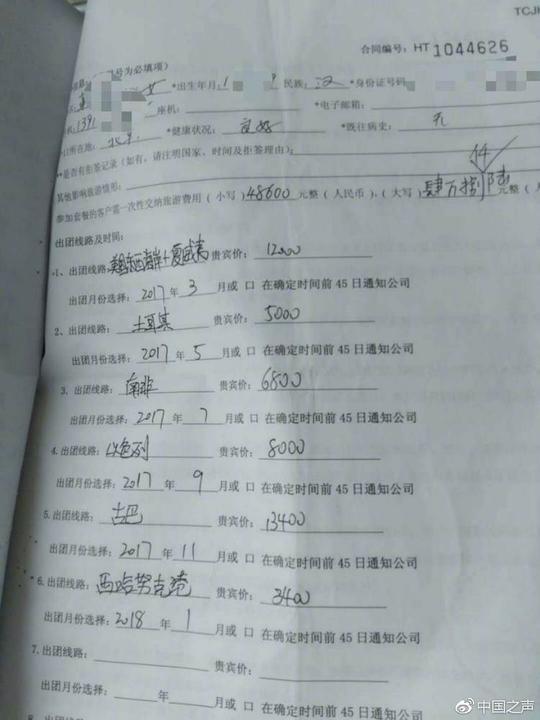 TCJ
合同编号：HT 1044626
号为必填项）
女 *出生年月：1 9 民族：汉 *身份证号码
座机： *电子邮箱：
机：139
口所在地：北京 *健康状况：良好 *既往病史：无
*是否有拒签记录（如有，请注明国家、时间及拒签理由）：
其他影响旅游情形：
参加套餐的客户需一次性交纳旅游费用（小写）48600元整（人民币），（大写）肆万捌仟陆
出团线路及时间：
1、出团线路：美国东西海岸+夏威夷 贵宾价：12000
出团月份选择：2017年3月或 口 在确定时间前 45 日通知公司
2、出团线路：土耳其 贵宾价：5000
出团月份选择：2017年5月或 口 在确定时间前 45 日通知公司
3. 出团线路：南非 贵宾价：6800
出团月份选择：2017年7月或 口 在确定时间前 45 日通知公司
4. 出团线路：以色列 贵宾价：8000
出团月份选择：2017年9月或 口 在确定时间前 45 日通知公司
5. 出团线路：古巴 贵宾价：13400
出团月份选择：2017年11月或 口 在确定时间前 45 日通知公司
6. 出团线路：西哈努克港 贵宾价：3400
出团月份选择：2018年1月或 口 在确定时间前 45 日通知公司
7. 出团线路： 贵宾价：
出团月份选择： 年 月或 口 在确定时间前 45 日通知公司
8. 出团线路
@中国之声